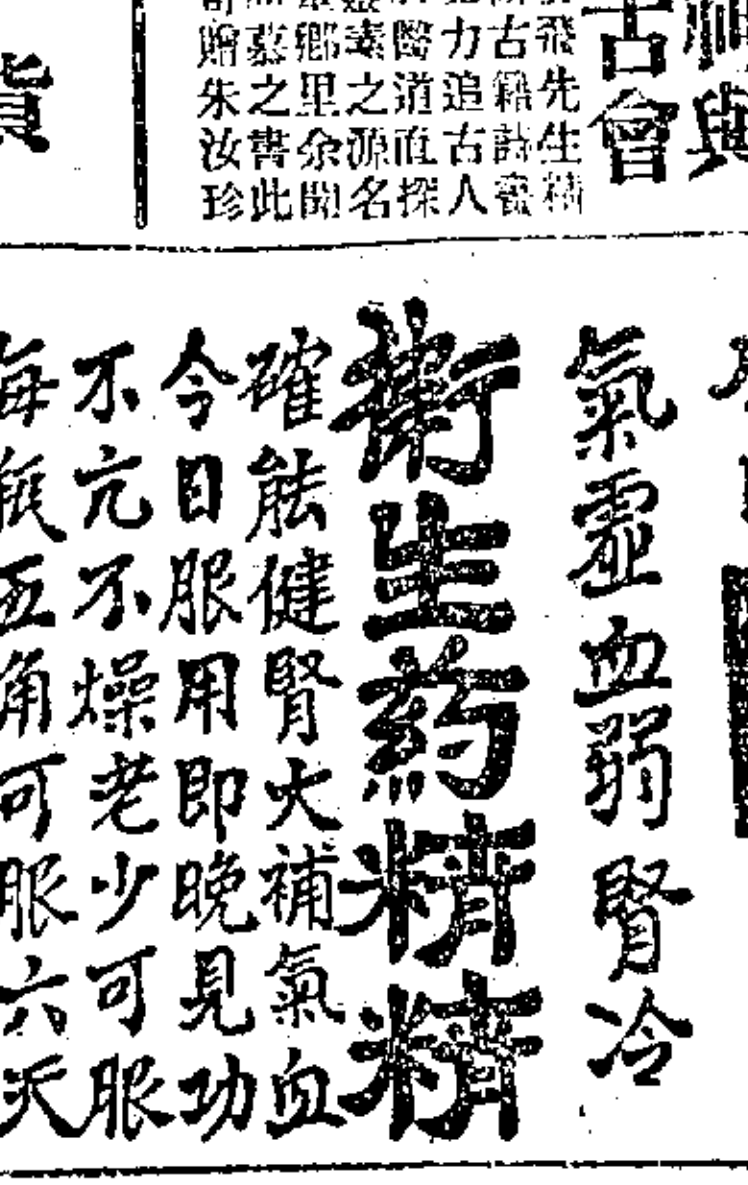 與
會
飛先生精
古籍
力追古人
醫道直探
素之源名
鄉里余聞
慕之書此
贈朱汝珍
貨
氣虛血弱腎冷
衛生葯精精
確能健腎大補氣血
今日服用即晚見功
不亢不燥老少可服
每瓶五角可服六天